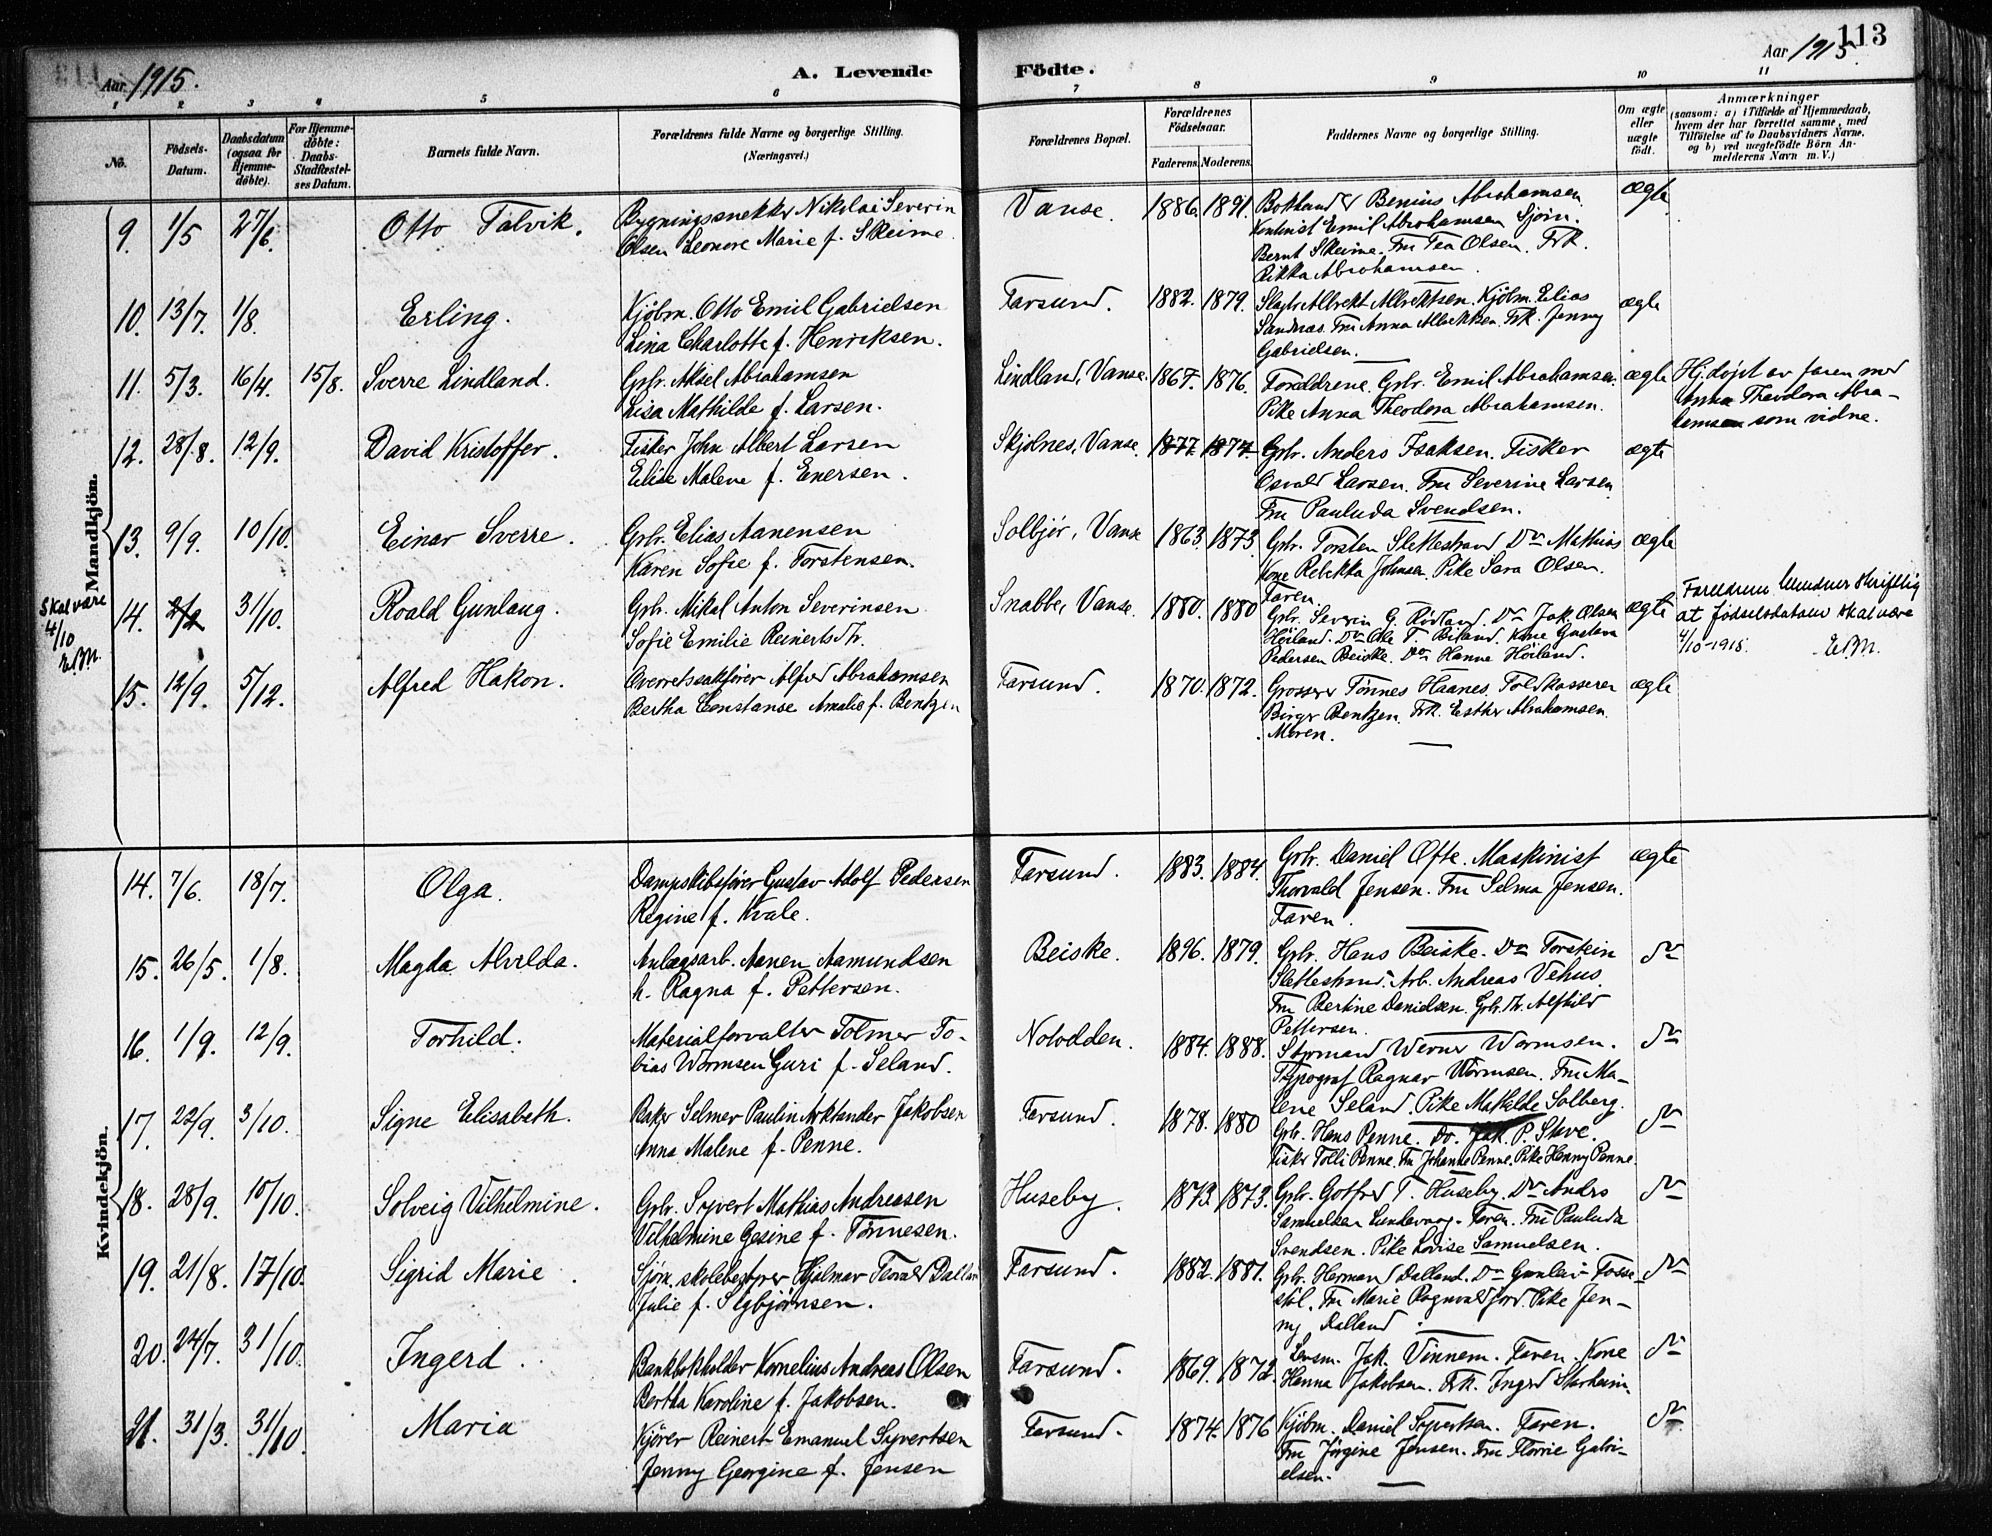 113
Aar 1915.
A. Levende
Födte.
Aar 1915.
1 2 3 4 5 6 7 8 9 10 11
No.
Födsels-
Datum.
Daabsdatum
(ogsaa for
Hjemme-
döbte).
For Hjemme-
döbte:
Daabs-
Stadfæstel-
ses Datum.
Barnets fulde Navn.
Forældrenes fulde Navne og borgerlige Stilling.
(Næringsvei.)
Forældrenes Bopæl.
Forældrenes
Födselsaar.
Faderens. Moderens.
Faddernes Navne og borgerlige Stilling.
Om ægte
eller
uægte
födt.
Anmærkninger
(saasom: a) i Tilfælde af Hjemmedaab,
hvem der har forrettet samme, med
Tilföielse af to Daabsvidners Navne,
og b) ved uægtefödte Börn An-
melderens Navn m. V.)
Mandkjön.
9. 1/5 27/6. Otto Talvik. Bygningssnekker Nikolai Severin
Olsen Leonore Marie f. Skeime.
Vanse. 1886. 1891. Benius Abrahamsen ægte
Emil Abrahamsen Sjöin.
Bernt Skeime. Fru Tea Olsen. Frk.
Rikka Abrahamsen.
10. 13/7. 1/8. Erling. Kjöbm. Otto Emil Gabrielsen
Lina Charlotte f. Henriksen.
Farsund. 1882. 1879. Kjöbm. Elias ægte
Sandnæs. Fru Anna Frk. Jenny
Gabrielsen.
11. 5/3. 16/4. 15/8. Sverre Lindland. Grbr. Aksel Abrahamsen
Lisa Mathilde f. Larsen.
Lindland, Vanse. 1867. 1876. Forældrene. Grbr. Emil Abrahamsen. ægte
Pike Anna Theodora Abrahamsen.
Hj. døpt av faren med
Anna Theodora Abra-
hamsen som vidne.
12. 28/8. 12/9. David Kristoffer. Fisker John Albert Larsen
Elise Malene f. Enersen.
Skjolnes, Vanse. 1877. 1874. Grbr. Anders Isaksen. Fisker ægte
Osvald Larsen. Fru Severine Larsen
Fru Pauluda Svendsen.
13. 9/9. 10/10. Einar Sverre. Grbr. Elias Aanensen
Karen Sofie f. Torstensen.
Solbjör, Vanse 1863. 1873. Grbr. Torsten Slettestrand Do Mathias ægte
Kone Rebekka Johnsen. Pike Sara Olsen.
Faren.
Skal være
4/10
E.B.M.
14. 2/2 31/10. Roald Gunlaug. Grbr. Mikal Anton Severinsen
Sofie Emilie Reinertsdtr.
Snabbe, Vanse. 1880. 1880 Grbr. Severin G. Rödland. Do Jak. Olsen ægte
Höiland. Do Ole T. Biland. Kone Gustava
Pedersen Beiske. Do Hanne Höiland.
Foreldrene skriftlig
at födselsdatum skal være
4/10-1915. E.B.M.
15. 12/9. 5/12. Alfred Hakon. Overretssakförer Alfred Abrahamsen
Bertha Constanse Amalie f. Bentzen
Farsund. 1870. 1872. Grosserer Tönnes Haanes. Toldkasserer ægte
Birger Bentzen. Frk. Esther Abrahamsen.
Moren.
Kvindekjön.
14. 7/6. 18/7. Olga. Dampskibsförer Gustav Adolf Pedersen
Regine f. Kvale.
Farsund. 1883. 1884. Grbr. Daniel Ofte. Maskinist ægte
Thorvald Jensen. Fru Selma Jensen.
Faren.
15. 26/5. 1/8. Magda Alvilda. Anlægsarb. Aanen Aamundsen
h. Ragna f. Pettersen.
Beiske. 1896. 1879. Grbr. Hans Beiske. Do Torstein Do
Slettestrand. Arb. Andreas Vehus.
Fru Bertine Danielsen. Grbr.dtr. Alfhild
Pettersen.
16. 1/9. 12/9. Torhild. Materialforvalter Tolmer To-
bias Wormsen Guri f. Seland.
Notodden. 1884. 1888. Styrmand Werner Wormsen. Do
Typograf Ragnar Wormsen. Fru Ma-
lene Seland. Pike Mathilde Solberg.
17. 22/9. 3/10. Signe Elisabeth. Baker Selmer Paulin Arktander Jakobsen
Anna Malene f. Penne.
Farsund. 1878. 1880 Grbr. Hans Penne. Do. Jak. P. Stave. Do
Fisker Tolli Penne. Fru Johanne Penne. Pike Henny Penne.
18. 28/9. 10/10. Solveig Vilhelmine. Grbr. Syvert Mathias Andreasen
Vilhelmine Gesine f. Tönnesen.
Huseby. 1873. 1873. Grbr. Gotfred T. Huseby. Do Anders Do
Samuelsen Lundevaag. Faren. Fru Pauluda
Svendsen. Pike Lovise Samuelsen.
19. 21/8. 17/10. Sigrid Marie. Sjöm.skolebestyrer Hjalmar Teovald Dalland
Julie f. Sigbjörnsen.
Farsund. 1882. 1881. Grbr. Herman Dalland. Do Gunleiv Fosse- Do
stöl. Fru Marie Ragnvaldjord. Pike Jen-
ny Dalland.
20. 24/7. 31/10. Ingerd. Bankbokholder Kornelius Andreas Olsen
Bertha Karoline f. Jakobsen.
Farsund. 1869. 1872. Lensm. Jak. Vinnem. Faren. Kone Do
Hanna Jakobsen. Frk. Ingerd Storheim.
21. 31/3. 31/10. Maria Kjörer Reinert Emanuel Syvertsen
Jenny Georgine f. Jensen
Farsund. 1874. 1876 Kjöbm. Daniel Syvertsen. Faren. Do
Fru Jörgine Jensen. Fru Florrie Gabri-
elsen.